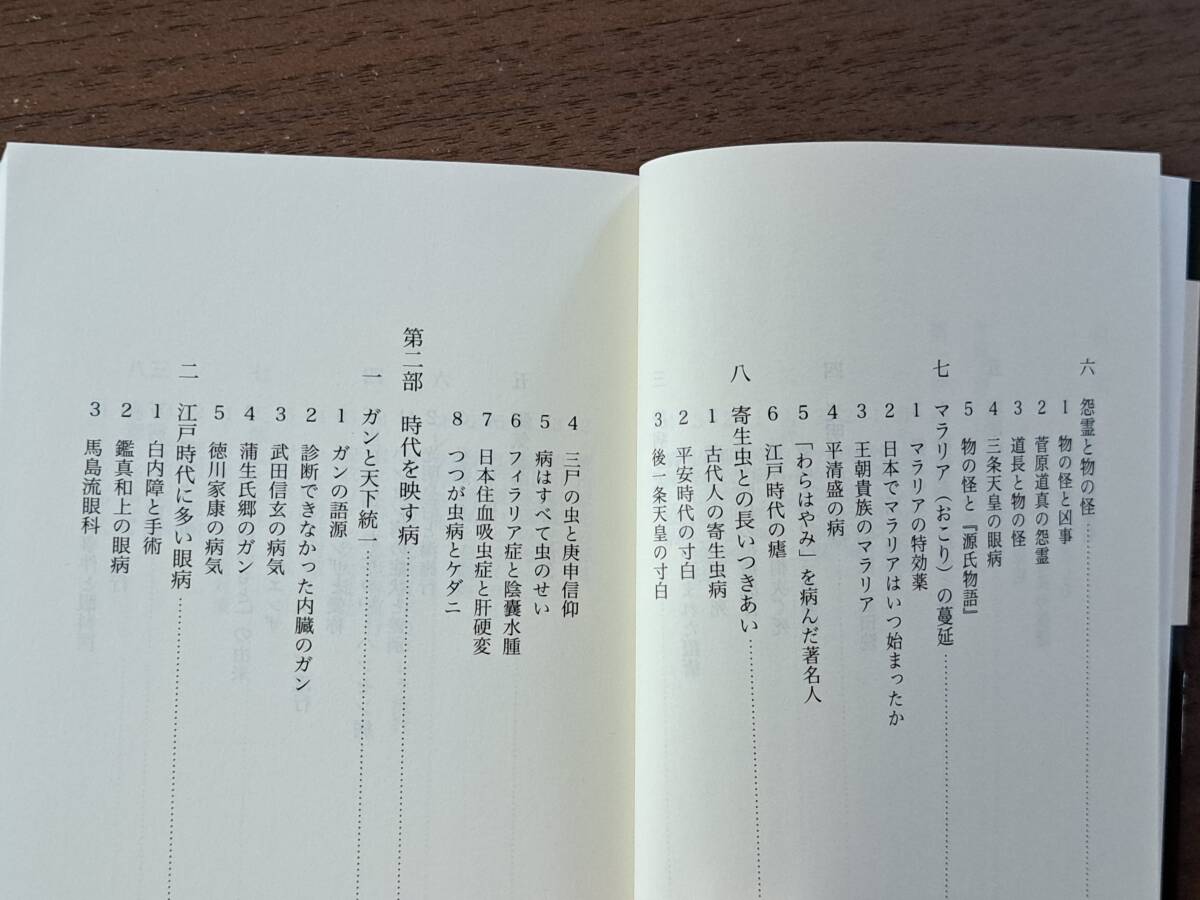 六 怨霊と物の怪
1 物の怪と凶事
2 菅原道真の怨霊
3 道長と物の怪
4 三条天皇の眼病
5 物の怪と『源氏物語』
七 マラリア（おこり）の蔓延
1 マラリアの特効薬
2 日本でマラリアはいつ始まったか
3 王朝貴族のマラリア
4 平清盛の病
5 「わらはやみ」を病んだ著名人
6 江戸時代の瘧
八 寄生虫との長いつきあい
1 古代人の寄生虫病
2 平安時代の寸白
3 後一条天皇の寸白
4 三戸の虫と庚申信仰
5 病はすべて虫のせい
6 フィラリア症と陰嚢水腫
7 日本住血吸虫症と肝硬変
8 つつが虫病とケダニ
第二部 時代を映す病
一 ガンと天下統一
1 ガンの語源
2 診断できなかった内臓のガン
3 武田信玄の病気
4 蒲生氏郷のガン
5 徳川家康の病気
二 江戸時代に多い眼病
1 白内障と手術
2 鑑真和上の眼病
3 馬島流眼科